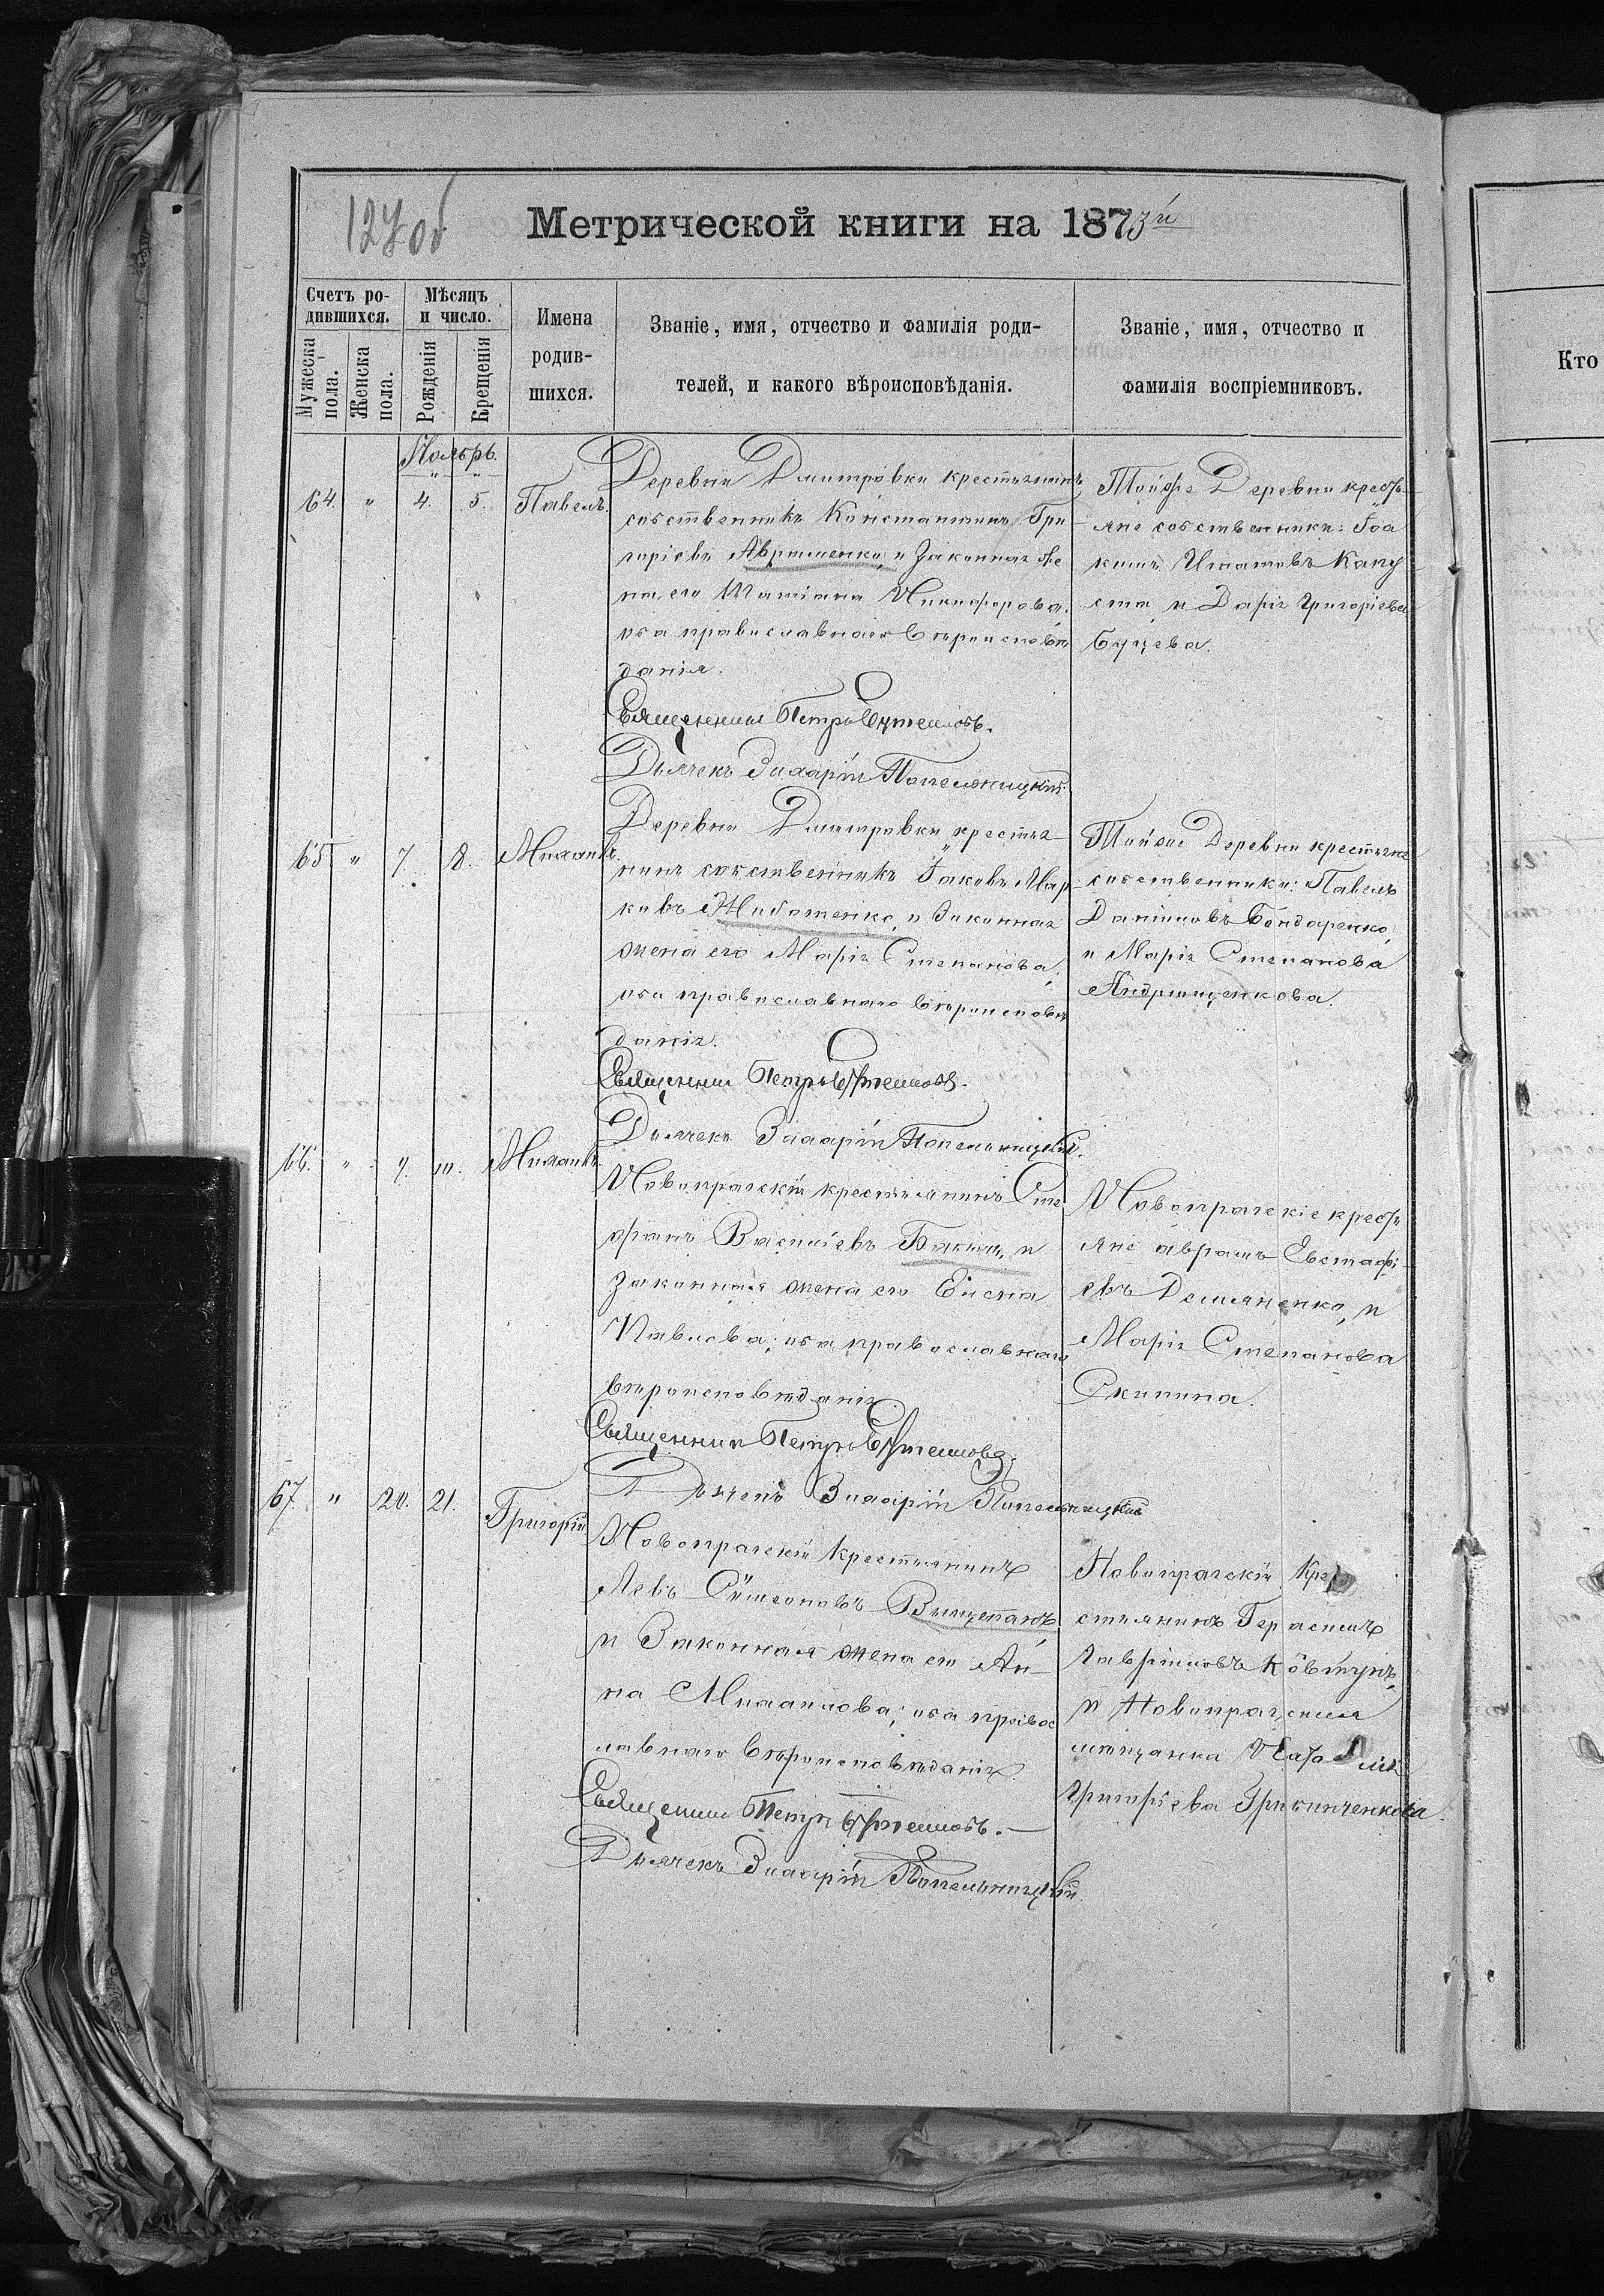 127об
Метрической книги на 1873й
Счетъ ро-
дившихся.
Мужеска пола.
Женска пола.
Мѣсяцъ
и число.
Рожденія
Крещенія
Имена
родив-
шихся.
Званіе, имя, отчество и фамилія роди-
телей, и какого вѣроисповѣданія.
Званіе, имя, отчество и
фамилія воспріемниковъ.
Кто
Ноябрь.
64. " 4. 5. Павелъ.
Деревни Дмитровки крестьянинъ
собственникъ Константинъ Гри-
горіевъ Авраменко, и законная же
на его Татіана Никифорова;
оба православнаго вѣроисповѣ
данія.
Священникъ Петръ
Дьячекъ Захарій Попельницкій.
Тойже Деревни кресть-
яне собственники: Іоа
кимъ Игнатовъ Капу
ста, и Дарія Григоріева
65 " 7. 8. Михаилъ.
Деревни Дмитровки крестья
нинъ собственникъ Іаковъ Мар-
ковъ и законная
жена его Марія Степанова;
оба православнаго вѣроисповѣ
данія.
Священникъ Петръ
Дьячекъ Захарій Попельницкій.
Тойже Деревни крестьяне
собственники: Павелъ
Даніиловъ Бондаренко,
и Марія Степанова
Андрющенкова.
66. " 9. 10. Михаилъ.
Новопражскій крестьянинъ Сте
фанъ Василіевъ и
законная жена его Елена
Павлова; оба православнаго
вѣроисповѣданія.
Священникъ Петръ
Дьячекъ Захарій Попельницкій
Новопражскіе кресть
яне Авраамъ Евстафі-
евъ Демяненко, и
Марія Степанова
67. " 20. 21. Григорій
Новопражскій крестьянинъ
Левъ Сѵмеоновъ
и законная жена его Ан-
на Михаилова; оба правос
лавнаго вѣроисповѣданія.
Священникъ Петръ
Дьячекъ Захарій Попельницкій.
Новопражскій кре
стьянинъ Герасимъ
Гавріиловъ Ковтунъ,
и Новопражская
мѣщанка
Григоріева